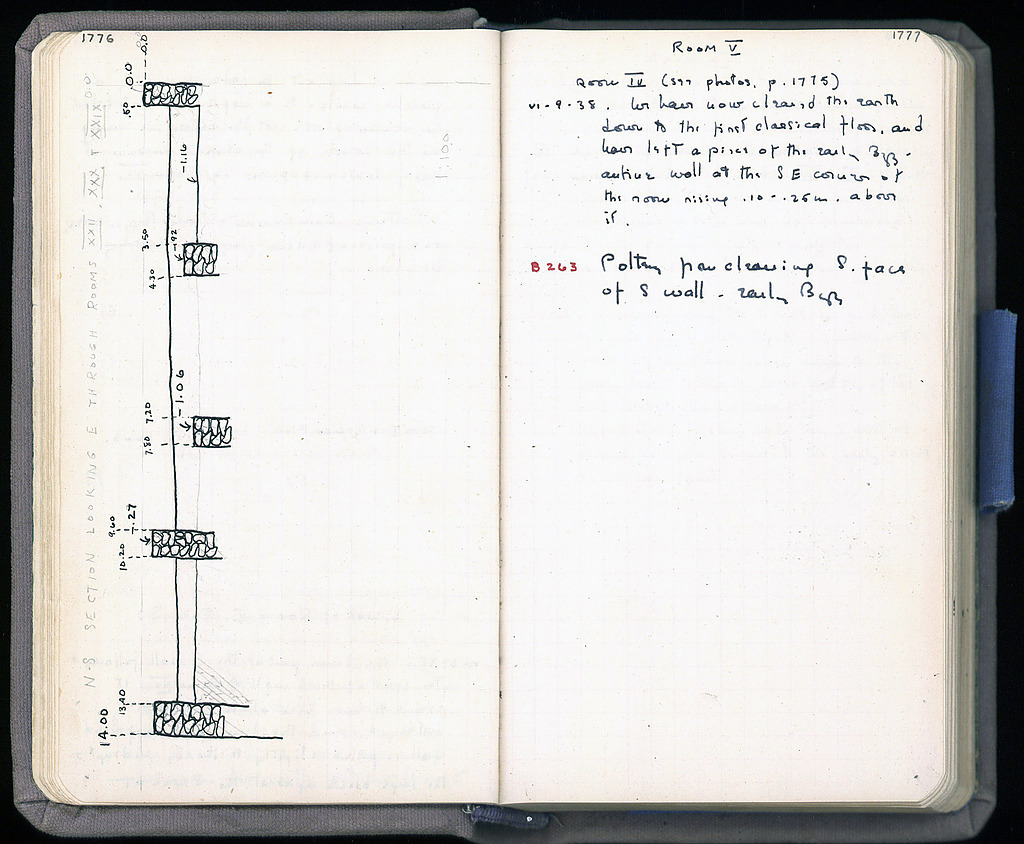 1776
0.0
0.0
.50
-1.16
3.50
-.92
4.30
-1.06
7.20
7.80
9.60
10.20
13.40
14.00
N-S SECTION LOOKING E THROUGH ROOMS XXII, XXX + XXIX
0.0
1:100
1777
ROOM V
ROOM IV (see photos, p. 1775)
VI-9-38. We have now cleared the earth
down to the first classical floor, and
have left a piece of the early Byz-
antine wall at the SE corner of
the room rising .10-.25m. above
it.
B263 Pottery from cleaning S. face
of S wall - early Byz